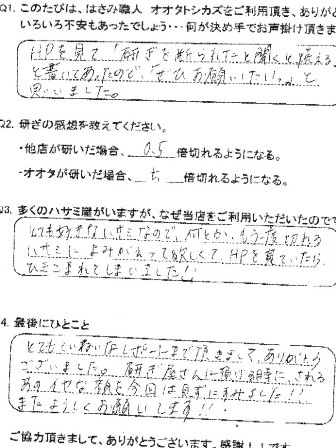 Q1. このたびは、はさみ職人 オオタトシカズをご利用頂き、ありが
いろいろ不安もあったでしょう・・・何が決め手でお声掛け頂きま
HPを見て「研ぎを断られたと聞くと燃える」
と書いてあったので、「ぜひお願いしたいっ」と
思いました。
Q2. 研ぎの感想を教えてください。
・他店が研いだ場合、 0.5 倍切れるようになる。
・オオタが研いだ場合、 5 倍切れるようになる。
Q3. 多くのハサミ屋がいますが、なぜ当店をご利用いただいたので
とても好きなハサミなので、何とか、もう一度切れる
ハサミによみがえって欲しくて、HPを見ていたら、
ひきこまれてしまいました!!
4. 最後にひとこと
とてもていねいなレポートまで頂きまして、ありがとう
ございました。研ぎ屋さんに預ける時に、される
あのイヤな顔を今回は見ずにすみました!!
またよろしくお願いします!!
ご協力頂きまして、ありがとうございます。感謝!!です